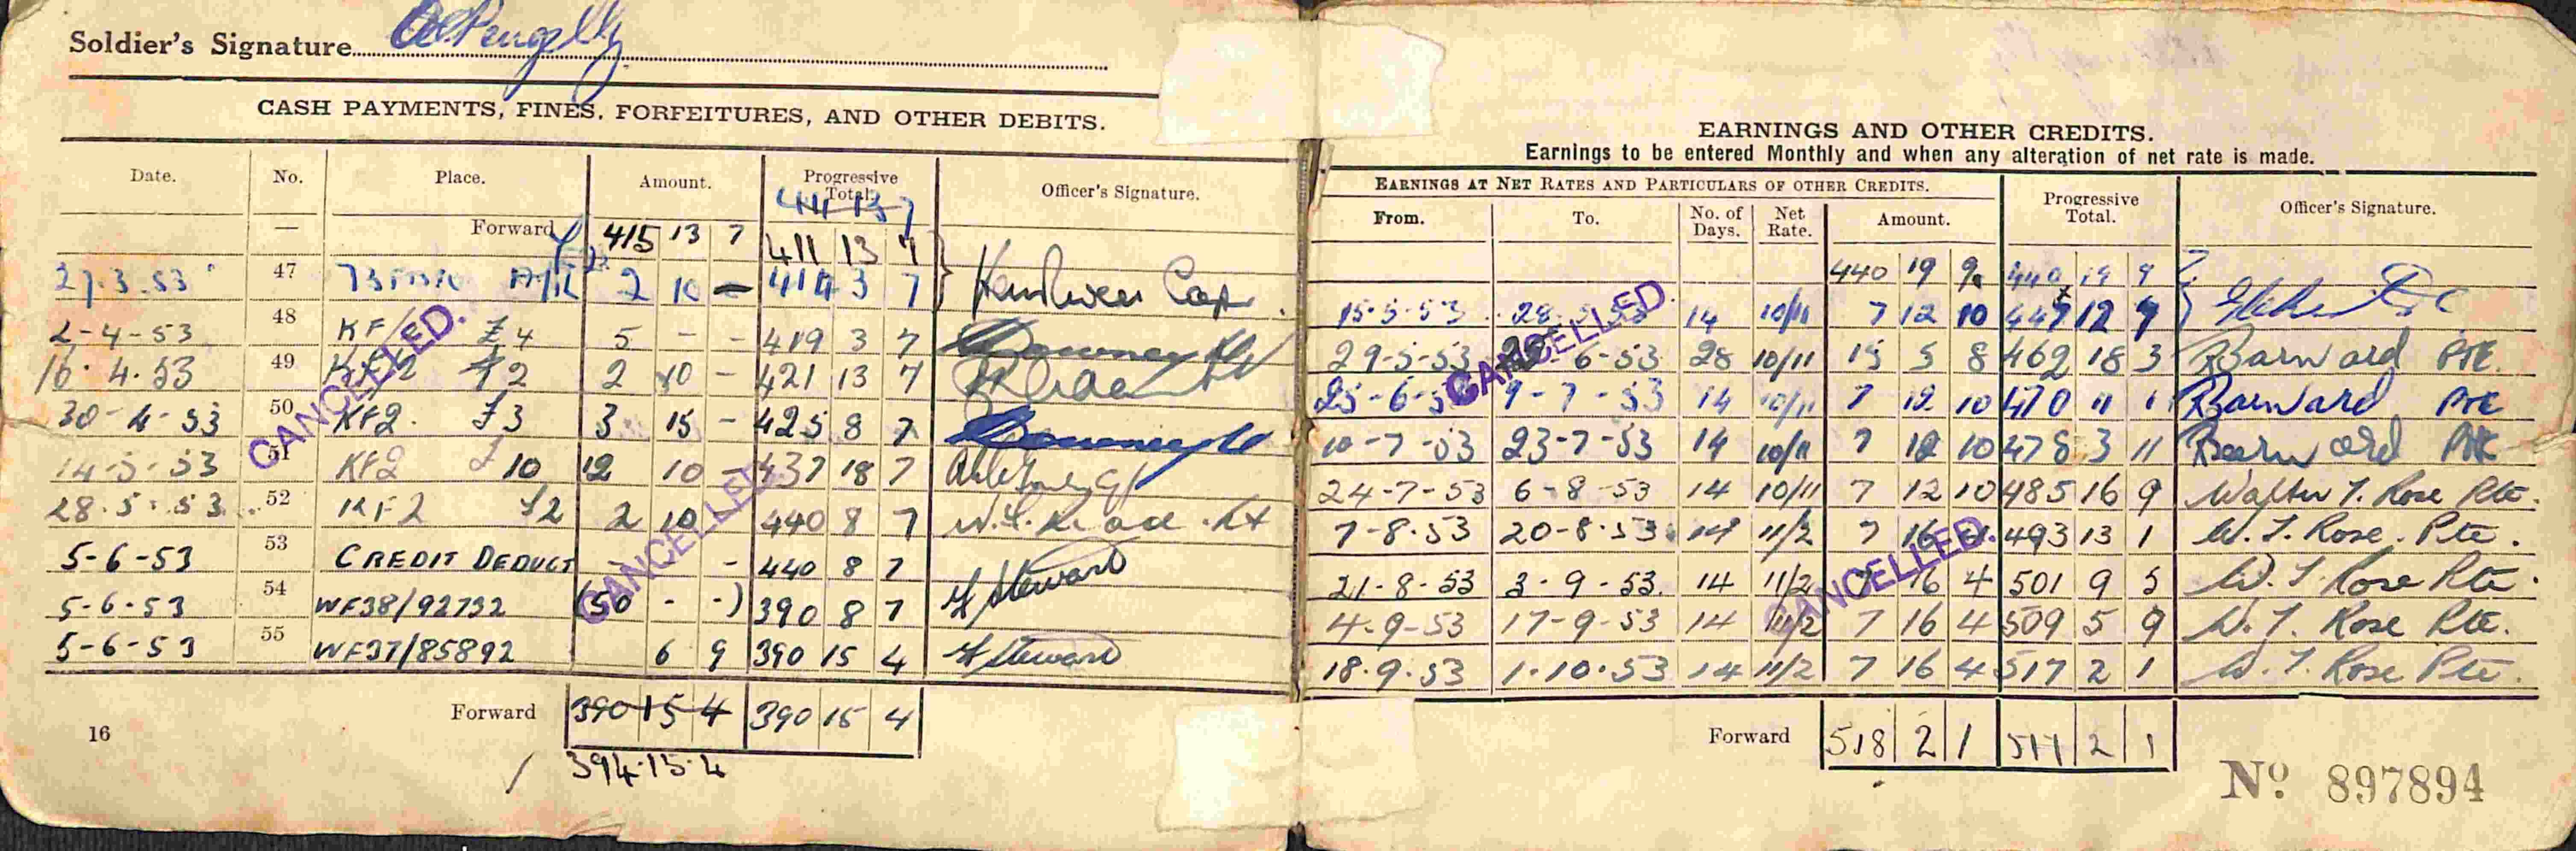 Soldier's Signature
CASH PAYMENTS, FINES, FORFEITURES, AND OTHER DEBITS.
Date. No. Place. Amount. Progressive Total. Officer's Signature.
411 13 7
— Forward 415 13 7 411 13 7
27.3.53 47 2 10 — 414 3 7
2-4-53 48 KF/ £4 5 - - 419 3 7
16.4.53 49 KF2 £2 2 10 - 421 13 7
30-4-53 50 KF2. £3 3 15 - 425 8 7
14-5-53 51 KF2 £10 12 10 - 437 18 7
28.5.53 52 KF2 £2 2 10 440 8 7
5-6-53 53 CREDIT DEDUCT - - 440 8 7 Steward
5-6-53 54 WF38/92732 (50 - -) 390 8 7 Steward
5-6-53 55 WF37/85892 6 9 390 15 4 Steward
Forward 390 15 4 390 15 4
394.15.4
16
CANCELLED.
CANCELLED.
EARNINGS AND OTHER CREDITS.
Earnings to be entered Monthly and when any alteration of net rate is made.
EARNINGS AT NET RATES AND PARTICULARS OF OTHER CREDITS. Progressive Total. Officer's Signature.
From. To. No. of Days. Net Rate. Amount.
440 19 9 440 19 9
15-5-53 28-5-53 14 10/11 7 12 10 447 12 7
29-5-53 6-53 28 10/11 15 5 8 462 18 3 Barnard PTE.
25-6-53 9-7-53 14 10/11 7 12 10 470 11 1 Barnard PTE
10-7-53 23-7-53 14 10/11 7 12 10 478 3 11 Barnard PTE
24-7-53 6-8-53 14 10/11 7 12 10 485 16 9 Walter T. Rose Pte.
7-8-53 20-8-53 14 11/2 7 16 4 493 13 1 W. T. Rose. Pte.
21-8-53 3-9-53. 14 11/2 7 16 4 501 9 5 W. T. Rose Pte.
4-9-53 17-9-53 14 11/2 7 16 4 509 5 9 W. T. Rose Pte.
18.9.53 1.10.53 14 11/2 7 16 4 517 2 1 W. T. Rose Pte.
Forward 518 2 1 517 2 1
CANCELLED.
CANCELLED.
No. 897894